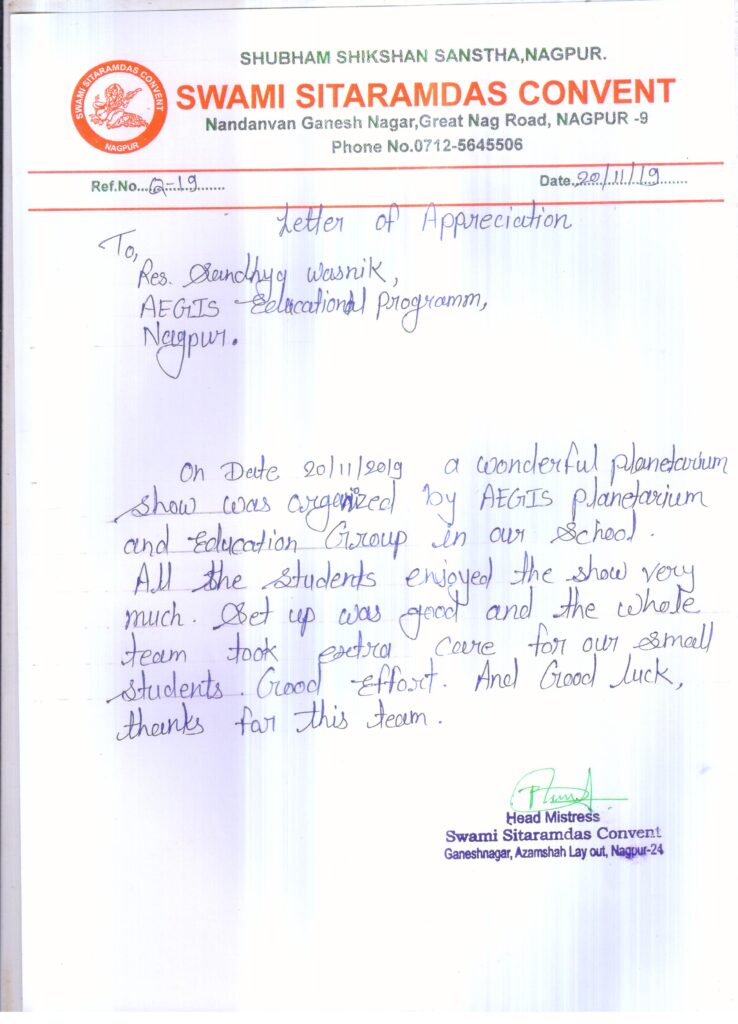 SHUBHAM SHIKSHAN SANSTHA,NAGPUR.
SWAMI SITARAMDAS CONVENT
NAGPUR
SWAMI SITARAMDAS CONVENT
Nandanvan Ganesh Nagar,Great Nag Road, NAGPUR -9
Phone No.0712-5645506
Ref.No...Q-19....... Date..20/11/19.......
Letter of Appreciation
To,
Res. Sandhya Wasnik,
AEGIS Educational Programm,
Nagpur.
On Date 20/11/2019 a wonderful planetarium
show was organized by AEGIS planetarium
and Education Group in our School.
All the students enjoyed the show very
much. Set up was good and the whole
team took extra care for our small
students. Good Effort. And Good luck,
thanks for this team.
Head Mistress
Swami Sitaramdas Convent
Ganeshnagar, Azamshah Lay out, Nagpur-24